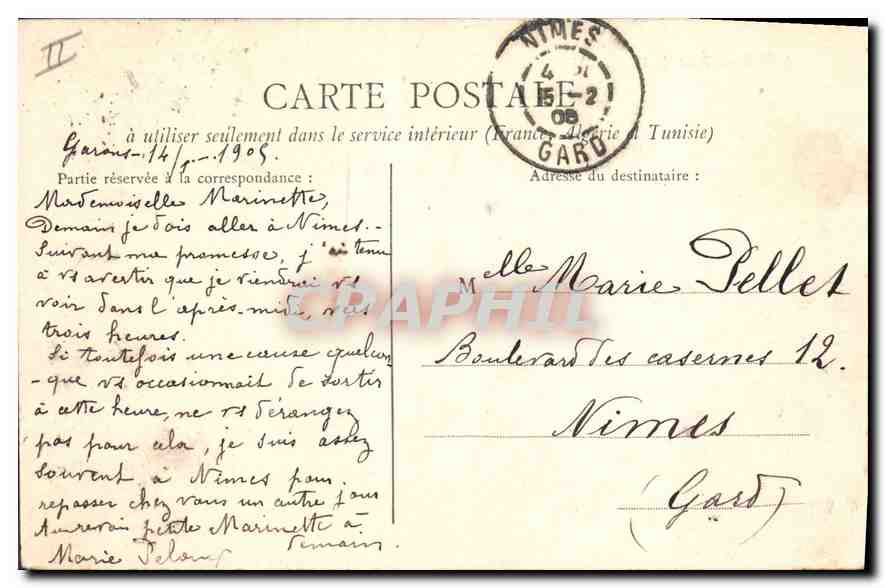 II
NIMES
4
15-2
GARD
CARTE POSTALE
à utiliser seulement dans le service intérieur (France, Algérie et Tunisie)
Garons - 14/ - 1905.
Partie réservée à la correspondance :
Mademoiselle Marinette,
Demain je dois aller à Nimes. -
Suivant ma promesse, j'ai tenu
à vs avertir que je viendrai vs
voir dans l'après-midi, vers
trois heures.
Si toutefois une cause quelcon-
-que vs occasionnait de sortir
à cette heure, ne vs dérangez
pas pour cela, je suis assez
souvent à Nimes pour
repasser chez vous un autre jour
Au revoir petite Marinette à
demain.
Marie
Adresse du destinataire :
Melle Marie Pellet
Boulevard des casernes 12.
Nimes
(Gard)
CPAPHIL